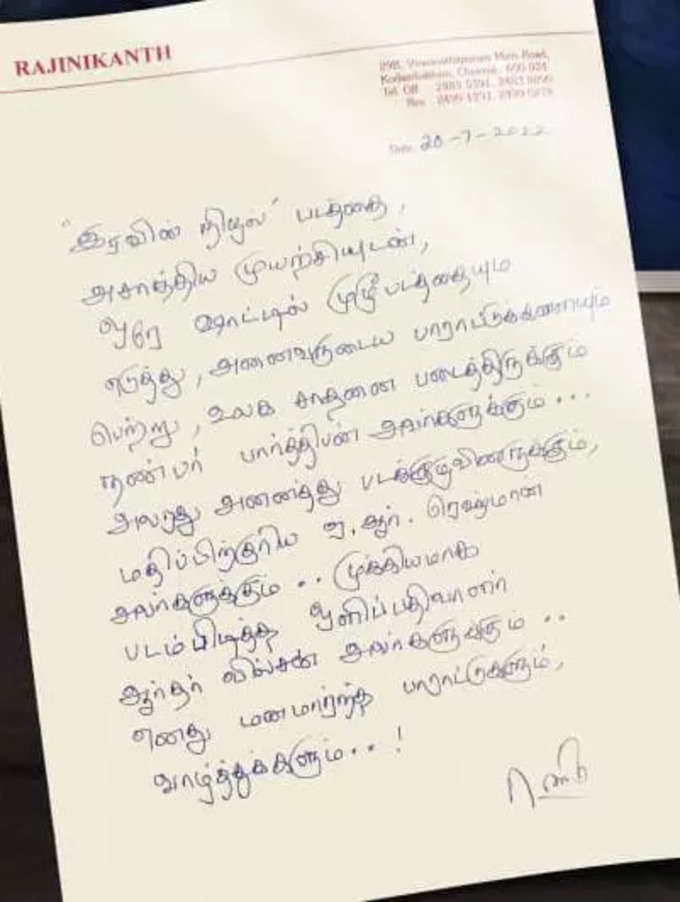 RAJINIKANTH
Kodambakkam, Chennai - 600 024
Date 20-7-2022
"இரவின் நிழல்" படத்தை,
அசாத்திய முயற்சியுடன்,
ஒரே ஷாட்டில் முழு படத்தையும்
எடுத்து, அனைவருடைய பாராட்டுக்களையும்
பெற்று, உலக சாதனை படைத்திருக்கும்
நண்பர் பார்த்திபன் அவர்களுக்கும் ...
அவரது அனைத்து படக்குழுவினருக்கும்,
மதிப்பிற்குரிய ஏ.ஆர். ரெஹ்மான்
அவர்களுக்கும் .. முக்கியமாக
படம்பிடித்த ஒளிப்பதிவாளர்
ஆர்தர் வில்சன் அவர்களுக்கும் ..
எனது மனமார்ந்த பாராட்டுகளும்,
வாழ்த்துக்களும்..!